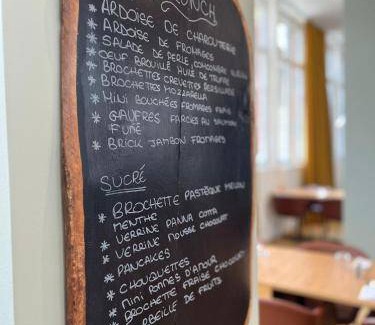 BRUNCH
* ARDOISE DE CHARCUTERIE
* ARDOISE DE FROMAGES
* SALADE DE PERLE, CONCOMBRE
* OEUF BROUILLÉ HUILE DE TRUFFE
* BROCHETTES CREVETTES PERSILLADE
* BROCHETTES MOZZARELLA
* MINI BOUCHÉES FROMAGES FRAIS
* GAUFRES FARCIES AU SAUMON
FUMÉ
* BRICK JAMBON FROMAGES
SUCRÉ
* BROCHETTE PASTÈQUE MELON
MENTHE
* VERRINE PANNA COTTA
* VERRINE MOUSSE CHOCOLAT
* PANCAKES
* CHOUQUETTES
* MINI POMMES D'AMOUR
* BROCHETTE FRAISE CHOCOLAT
* CORBEILLE DE FRUITS